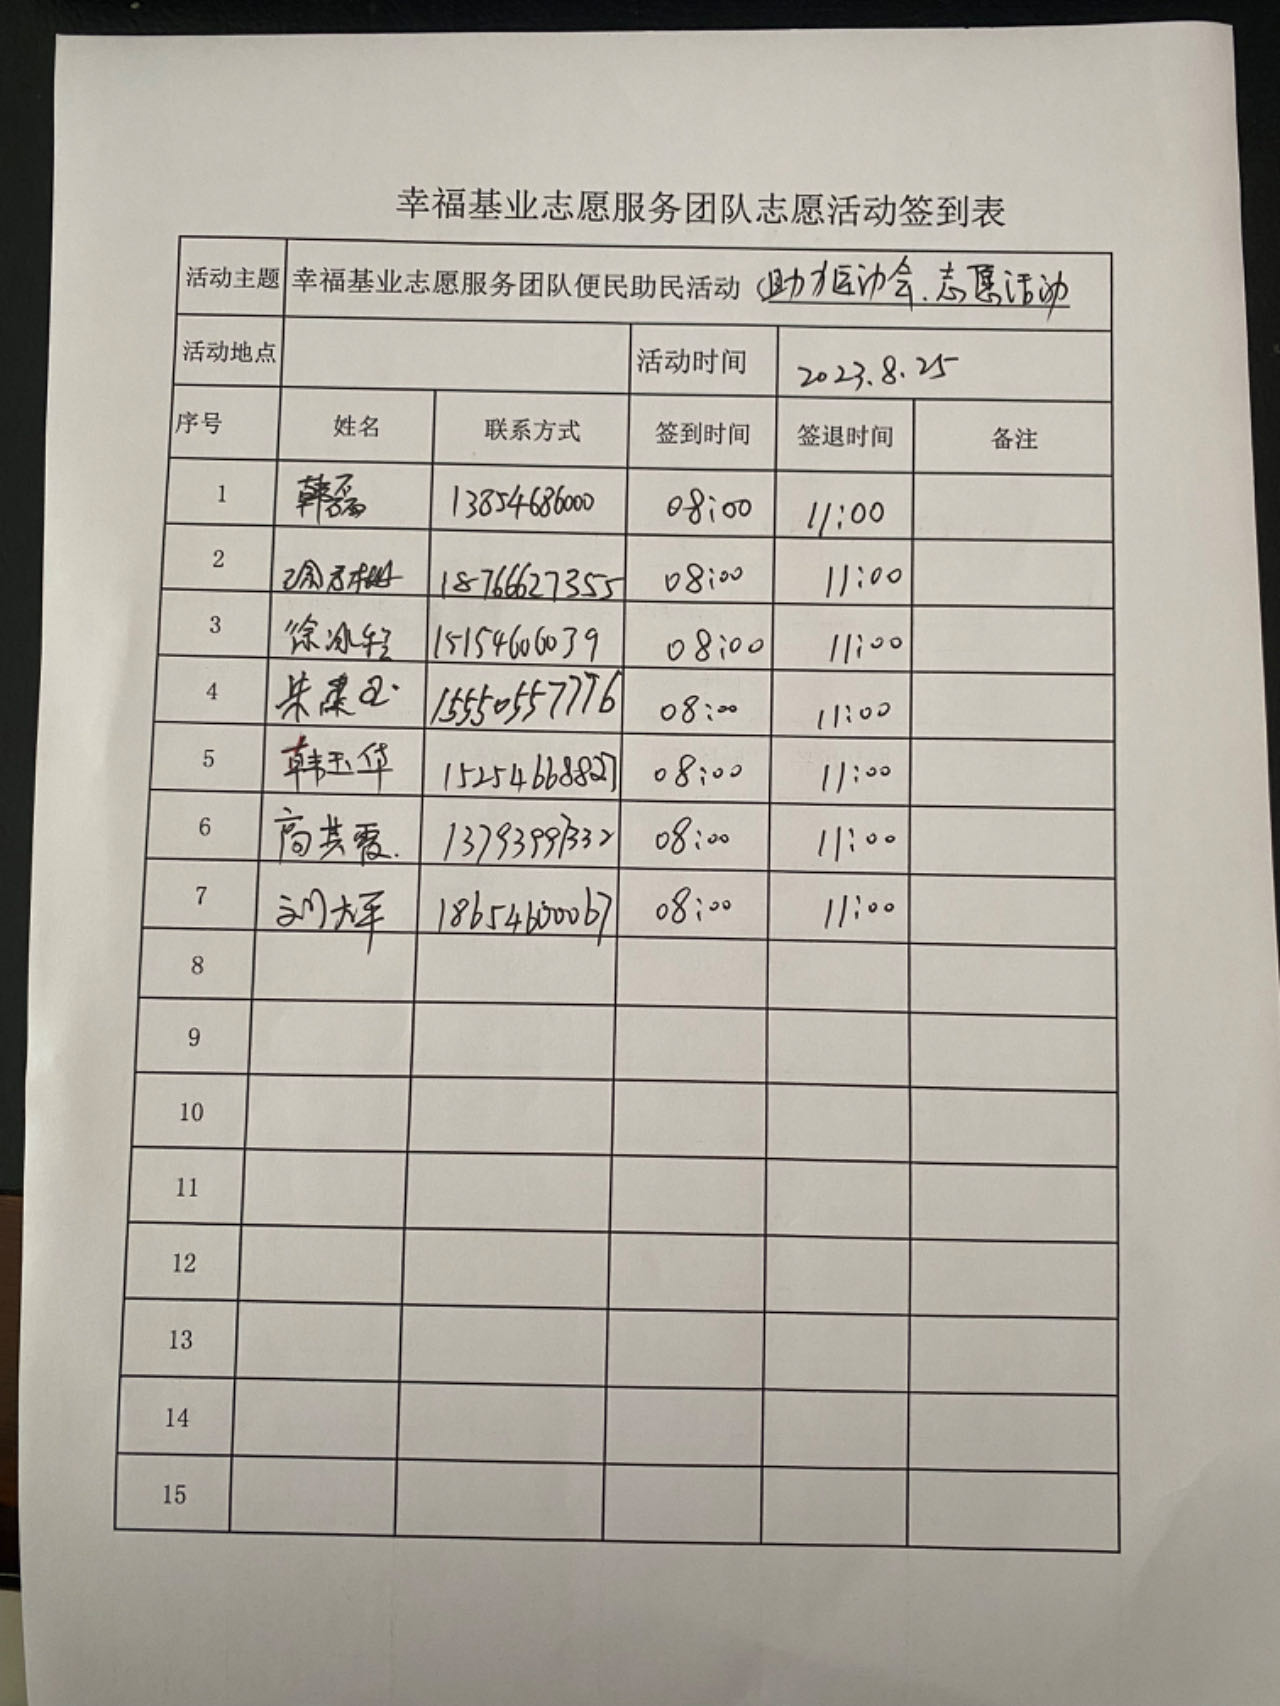 幸福基业志愿服务团队志愿活动签到表
活动主题 幸福基业志愿服务团队便民助民活动 (助力运动会、志愿活动
活动地点 活动时间 2023.8.25
序号 姓名 联系方式 签到时间 签退时间 备注
1 韩磊 13854686000 08:00 11:00
2 18766627355 08:00 11:00
3 徐冰 15154606039 08:00 11:00
4 朱建 15550557776 08:00 11:00
5 韩玉华 15254668827 08:00 11:00
6 高共霞 13793997332 08:00 11:00
7 刘大军 18654600067 08:00 11:00
8
9
10
11
12
13
14
15